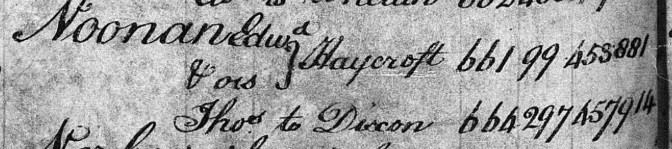 Noonan Edwd } Haycroft 661 99 453881
& ors
Thos to Dixon 664 297 457914